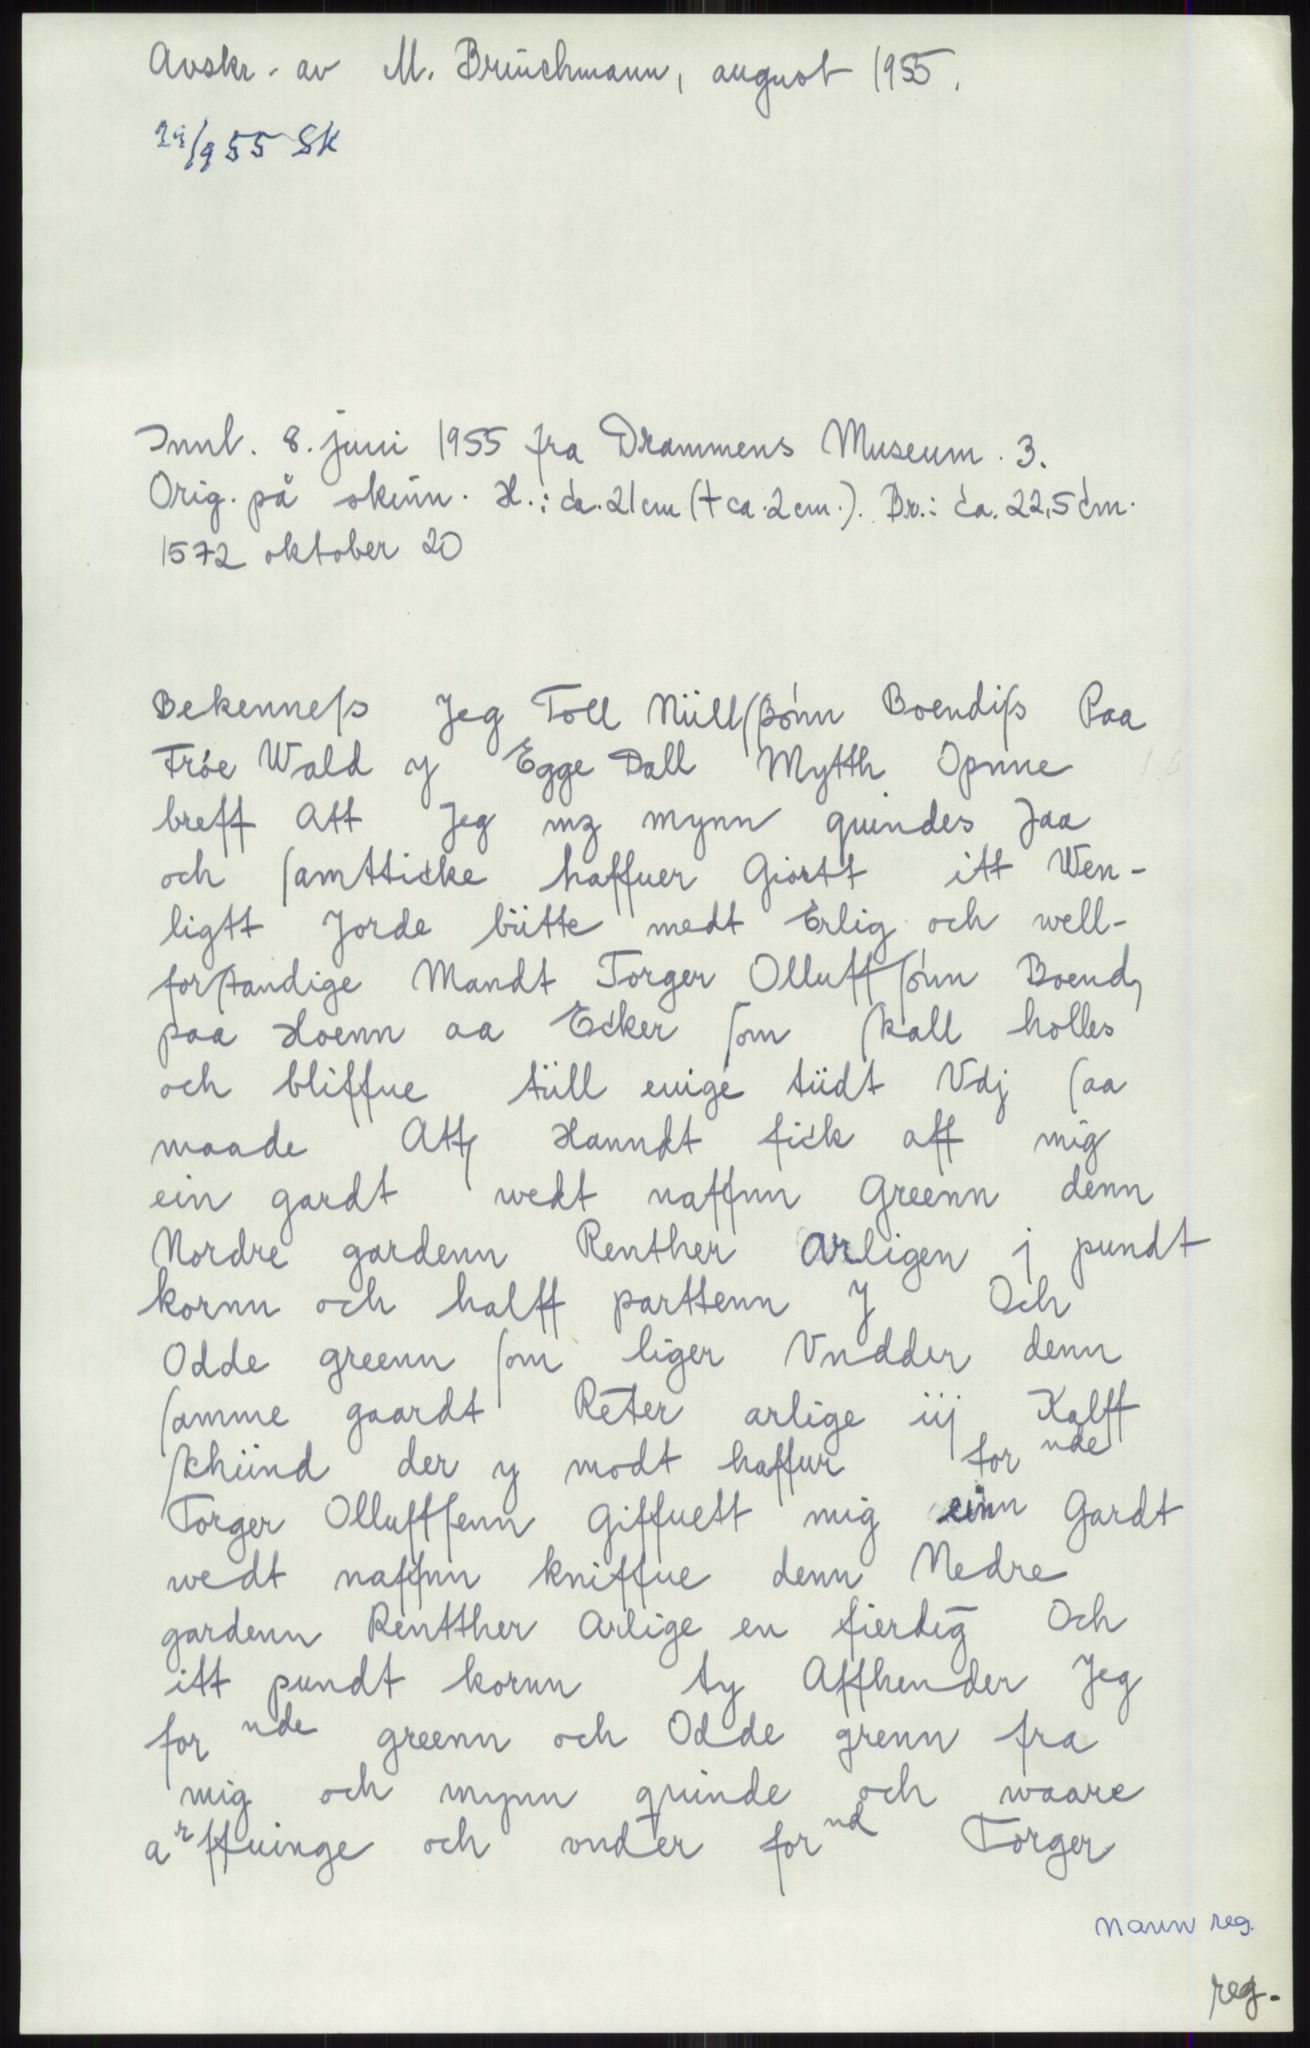 Avskr. av M. Brüichmann, august 1955.
29/9 55 SK
Innl. 8. juni 1955 fra Drammens Museum. 3.
Orig. på skinn. H.: ca. 21 cm (+ ca. 2 cm.). Br.: ca. 22,5 cm.
1572 oktober 20
Bekenneſs Jeg Toll Niillſßónn Boendiſs Paa
Fróe Wald y Egge Dall Mytth Opnne
breff Att Jeg mz mynn quindes Jaa
och ſamtticke haffuer Giortt itt Wen-
ligtt Jorde bütte medt Erlig och well-
forſtandige Mandt Torger Olluffſónn Boend,
paa Hoenn aa Ecker ſom ſkall holles
och bliffue tüll euige tüdt Vdj ſaa
maade Att Hanndt fick aff mig
ein gardt wedt naffnn Greenn denn
Nordre gardenn Renther Arligen j pundt
kornn och halff parttenn y Och
Odde greenn ſom liger Vndder denn
ſamme gaardt Reter arlige iij Kalff
ſkhiind der y modt haffur for nde
Torger Olluffſenn Giffuett mig einn Gardt
wedt naffnn kniffue denn Nedre
gardenn Rentther Arlige en fierdig̅ Och
itt pundt kornn ty Affhender Jeg
for nde greenn och Odde grenn fra
mig och mynn quinde och waare
arffuinge och vnder for nd Torger
Navn reg.
reg.